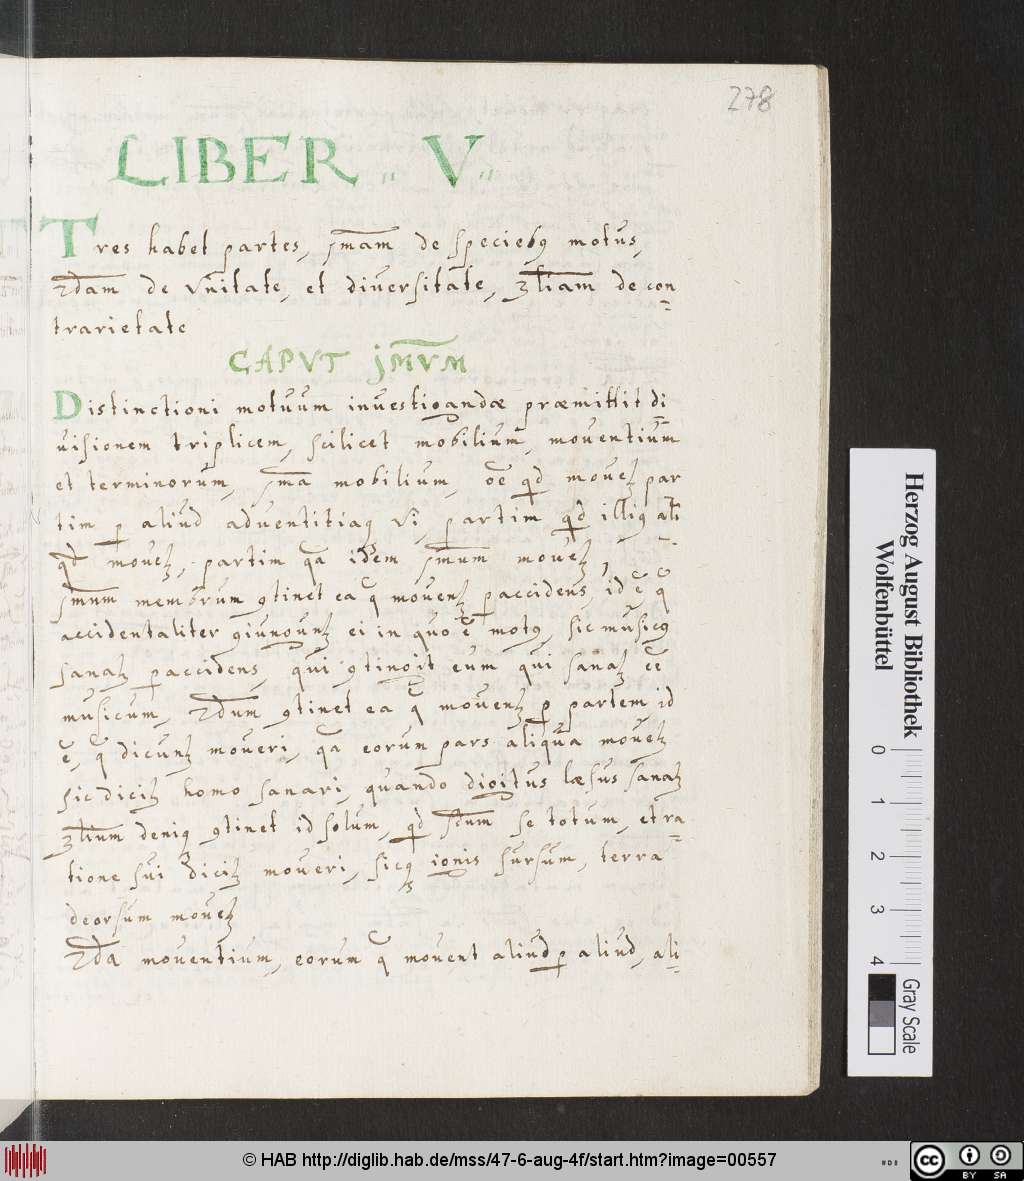 278
LIBER „ V „
Tres habet partes, jmam de speciebꝫ motus,
2dam de vnitate, et diversitate, 3tiam de con=
trarietate
CAPVT jMVM
Distinctioni motuum investigandæ præmittit di=
uisionem triplicem, scilicet mobilium, moventium
et terminorum, jma mobilium, oē qd movetꝫ par
tim ꝑ aliud
qd movetꝫ, partim qa idem jmum movetꝫ,
jmum membrum ꝯtinet ea q̄ moventꝫ ꝑaccidens, id ē q̄
accidentaliter ꝯiunguntꝫ ei in quo ē motꝯ, sic musicꝯ
sanatꝫ ꝑaccidens, qui ꝯtingit eum qui sanatꝫ eē
musicum, 2dum ꝯtinet ea q̄ moventꝫ ꝑ partem id
ē, q̄ dicuntꝫ moveri, qa eorum pars aliqua movetꝫ
sic dicitꝫ homo sanari, quando digitus læsus sanatꝫ
3tium deniqꝫ ꝯtinet id solum, qd sdum se totum, et ra=
tione sui dicitꝫ moveri, sicꝫ ignis sursum, terra
deorsum movetꝫ
2da moventium, eorum q̄ movent aliud ꝑ aliud, ali=
Herzog August Bibliothek
Wolfenbüttel
0 1 2 3 4
Gray Scale
© HAB http://diglib.hab.de/mss/47-6-aug-4f/start.htm?image=00557
cc BY SA